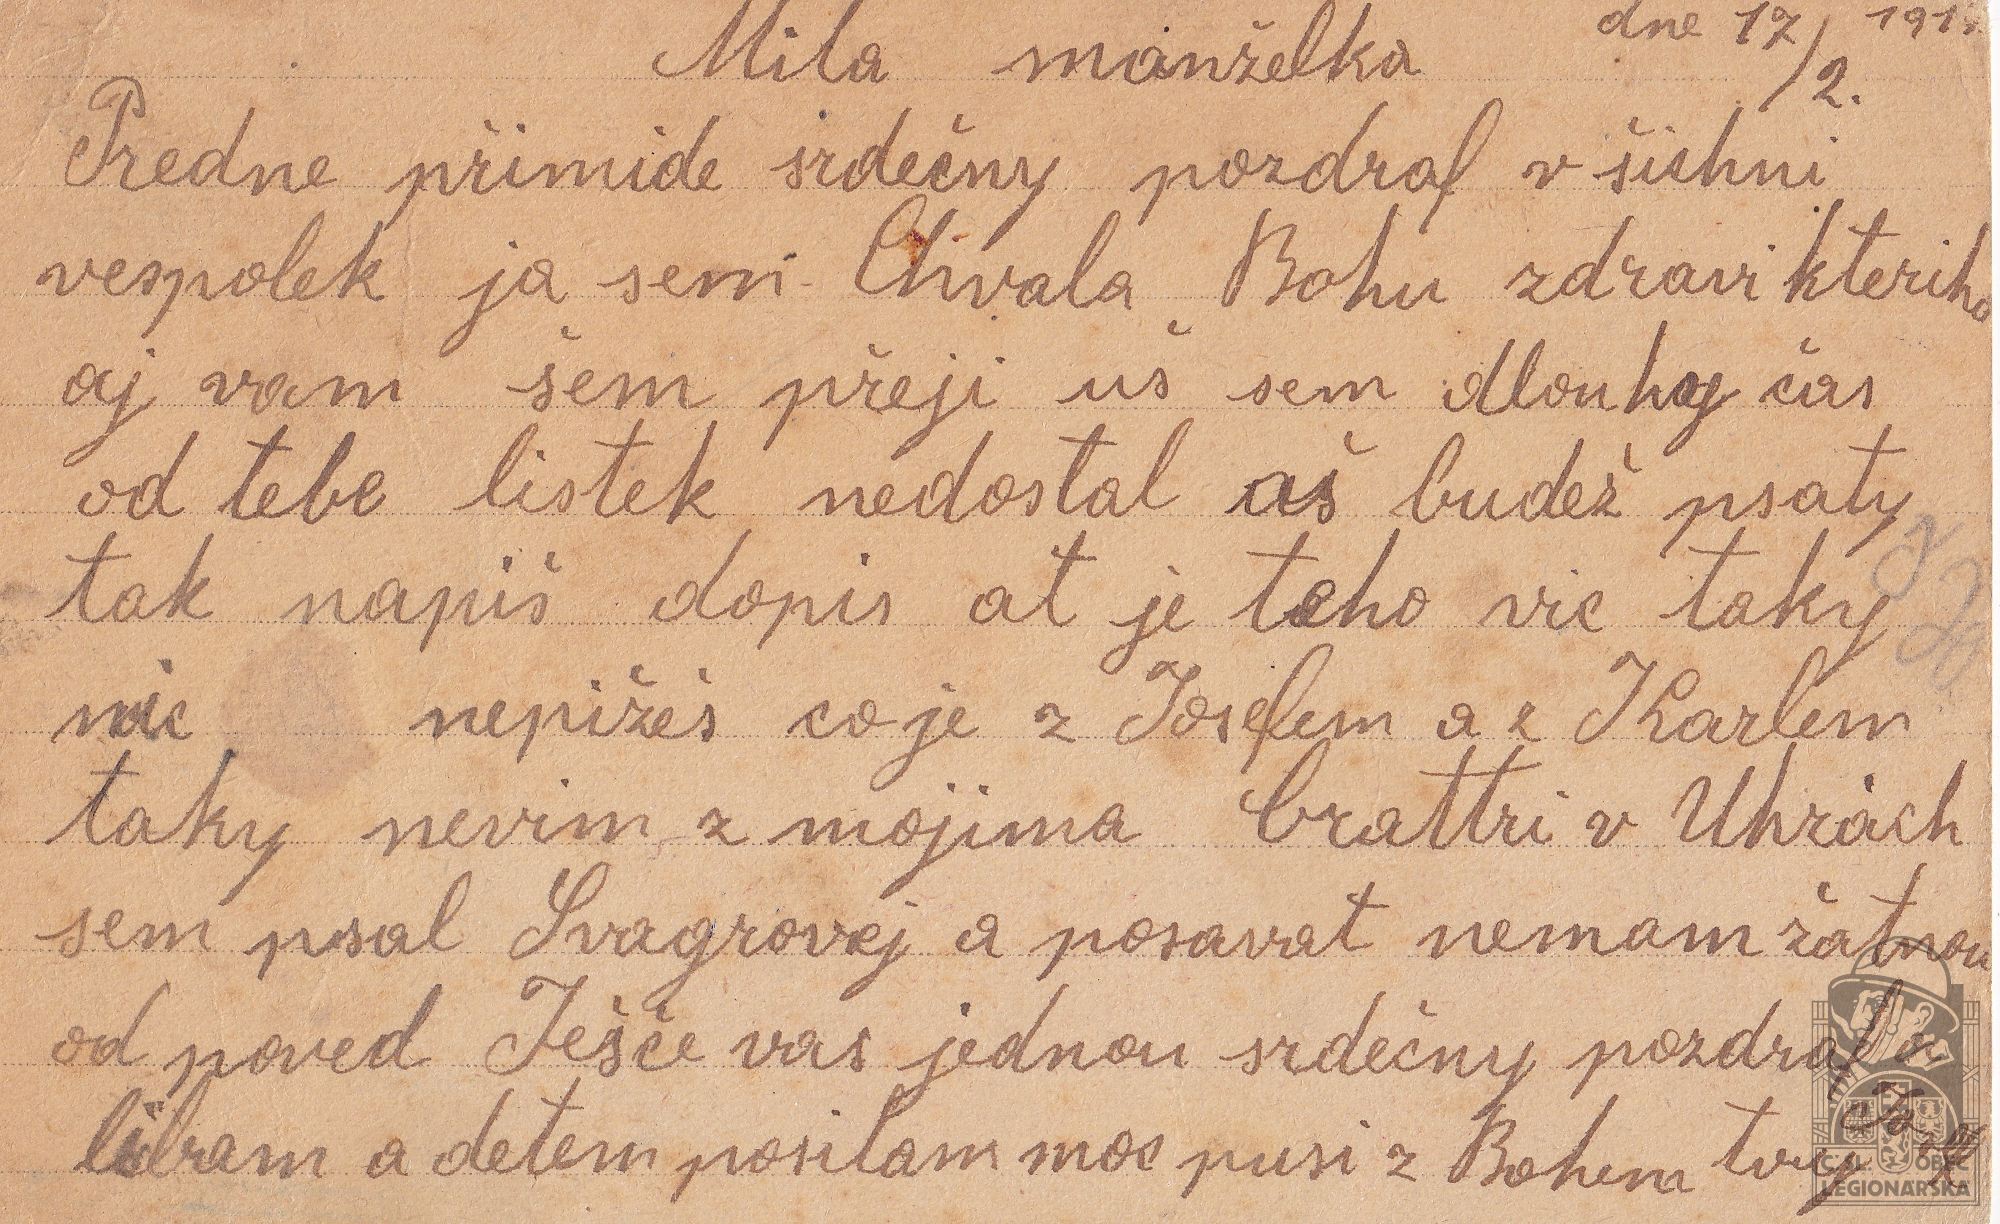 dne 17/2. 191
Mila manželka
Predne přimide srdečny pozdraf v šichni
vespolek ja sem Chvala Bohu zdravi kteriho
aj vam šem přeji uš sem dlouhy čas
od tebe listek nedostal aš budež psaty
tak napiš dopis at je teho vic taky
nic nepižeš co je z Josefem a z Karlem
taky nevim z mojima brattri v Uhrach
sem psal Svagrovej a posavat nemam žatnou
od poved Ješče vas jednou srdečny pozdraf a
libam a detem posilam moc pusi z Bohem tvuj
ČS. OBEC
LEGIONÁŘSKÁ